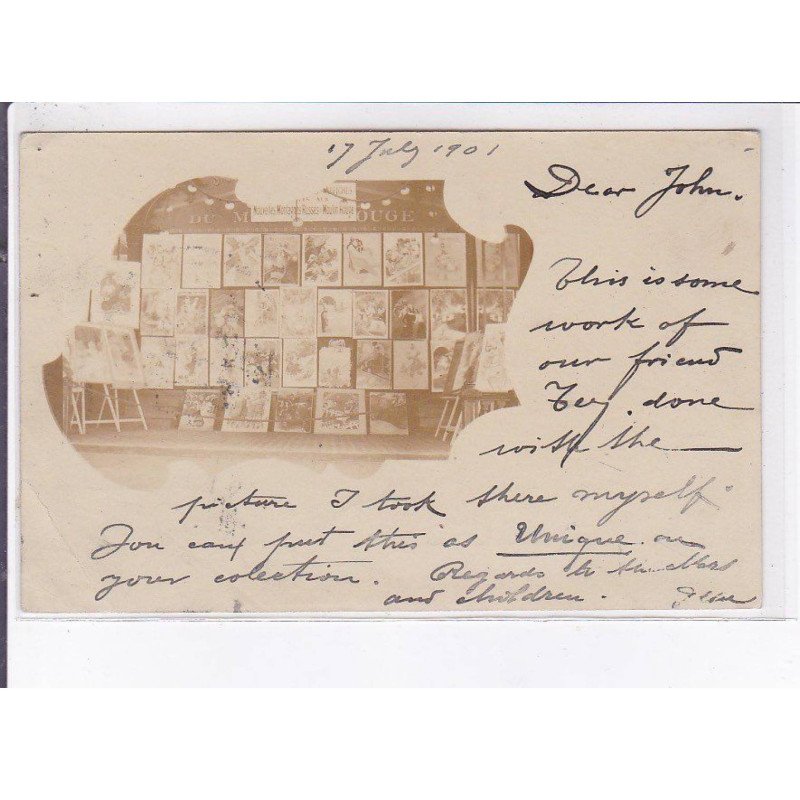 17 July 1901
Dear John.
This is some
work of
our friend
done
with the
picture I took there myself
You can put this as Unique on
your colection. Regards to the Mrs
and children.
DU M ROUGE
NOUVELLES MONTAGNES RUSSES - MOULIN ROUGE